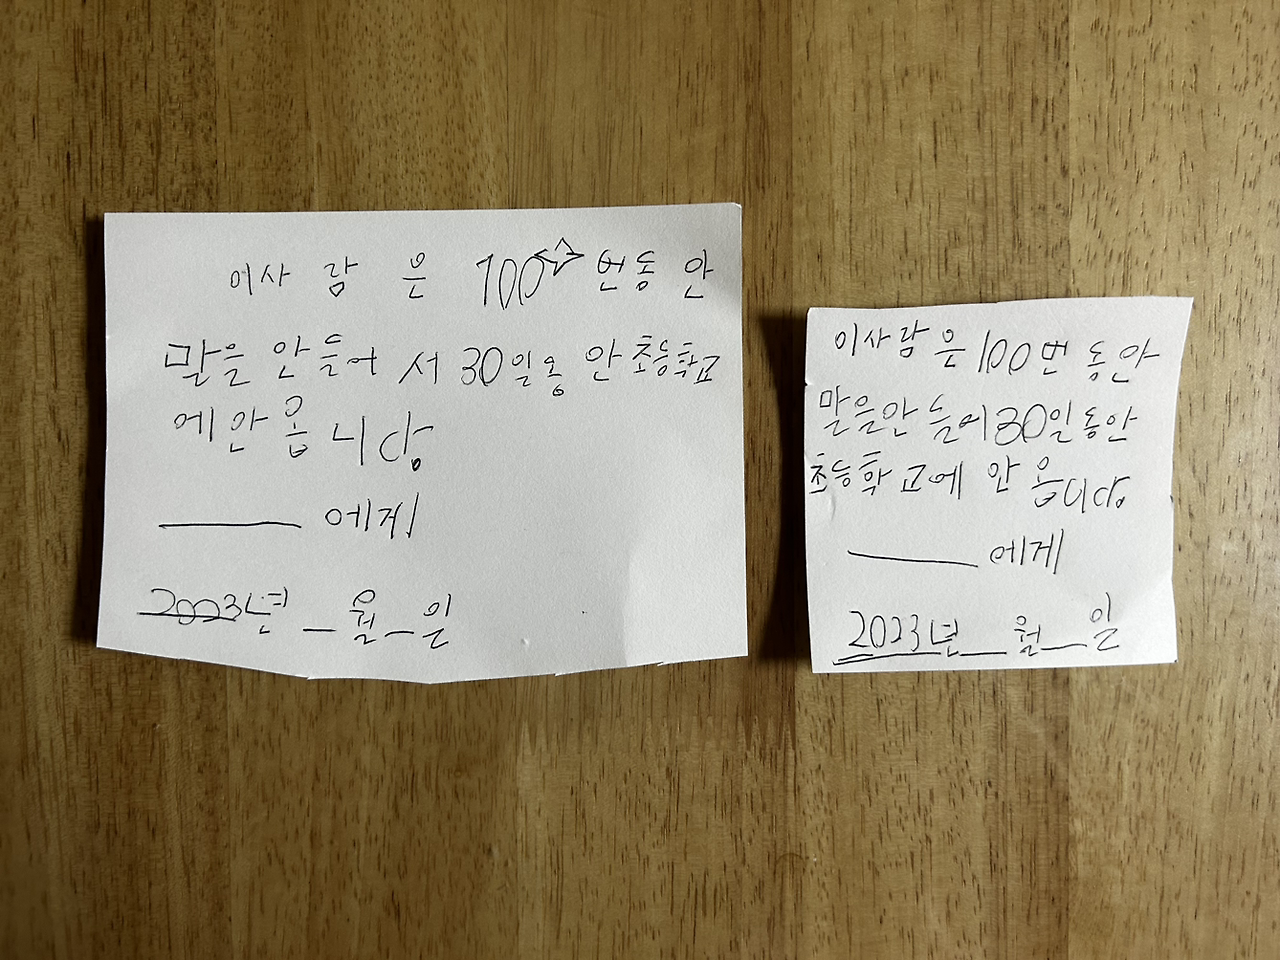 이사람은 100번동안
말을 안들어서 30일동안초등학교
에안옵니다
에게
2023년 _월_일
이사람은 100번동안
말을안들어30일동안
초등학교에 안옵니다.
에게
2023년_월_일